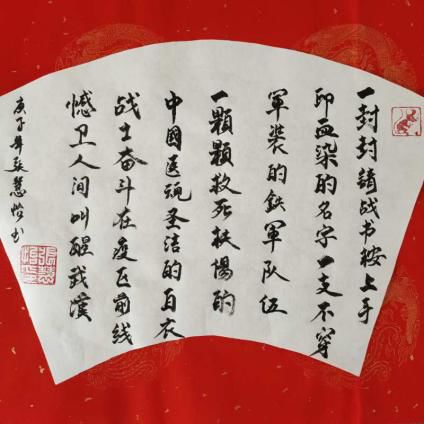 一封封請战书按上手
印血染的名字一支不穿
軍裝的鉄軍队伍
一顆顆救死扶傷的
中國医魂圣洁的白衣
战士奋斗在疫区前线
憾卫人间叫醒武漢
庚子年张慧书